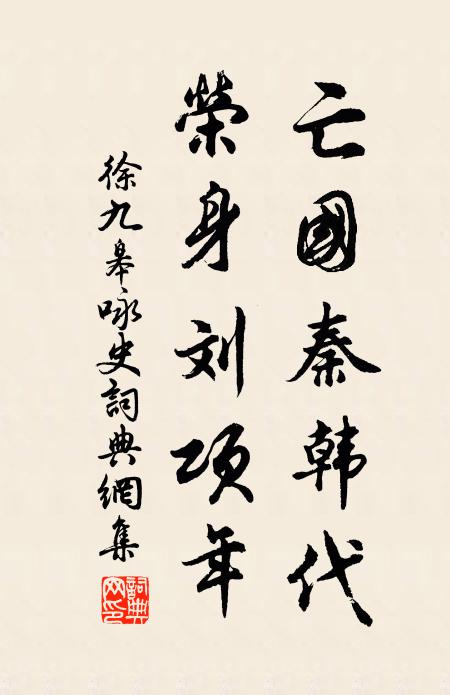 亡國秦韩代
榮身刘项年
徐九皋咏史詞典網集
詞典网印